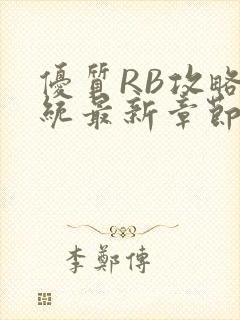 優質RB攻略
統最新章節
李鄭傳